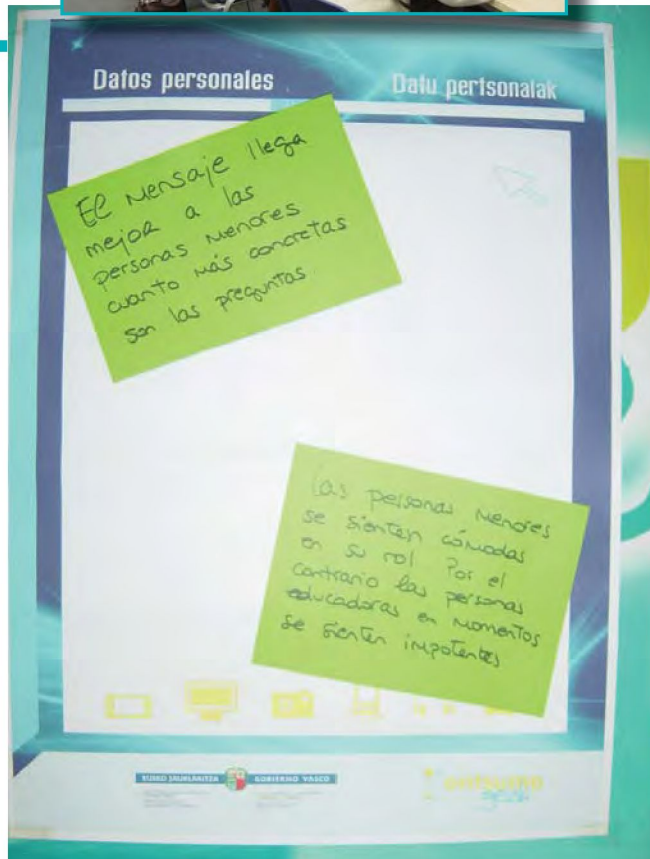 Datos personales
Datu pertsonalak
El mensaje llega
mejor a las
personas menores
cuanto más concretas
son las preguntas
Las personas menores
se sienten cómodas
en su rol Por el
contrario las personas
educadoras en momentos
se sienten impotentes
EUSKO JAURLARITZA
GOBIERNO VASCO